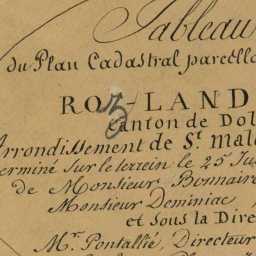 Tableau
du Plan Cadastral parcella
ROZ-LAND
Canton de Dol
Arrondissement de St. Malo
erminé sur le terrein le 25 Jui
de Monsieur Bonnaire
Monsieur Dominiac
et sous la Dire
Mr. Pontallié, Directeur